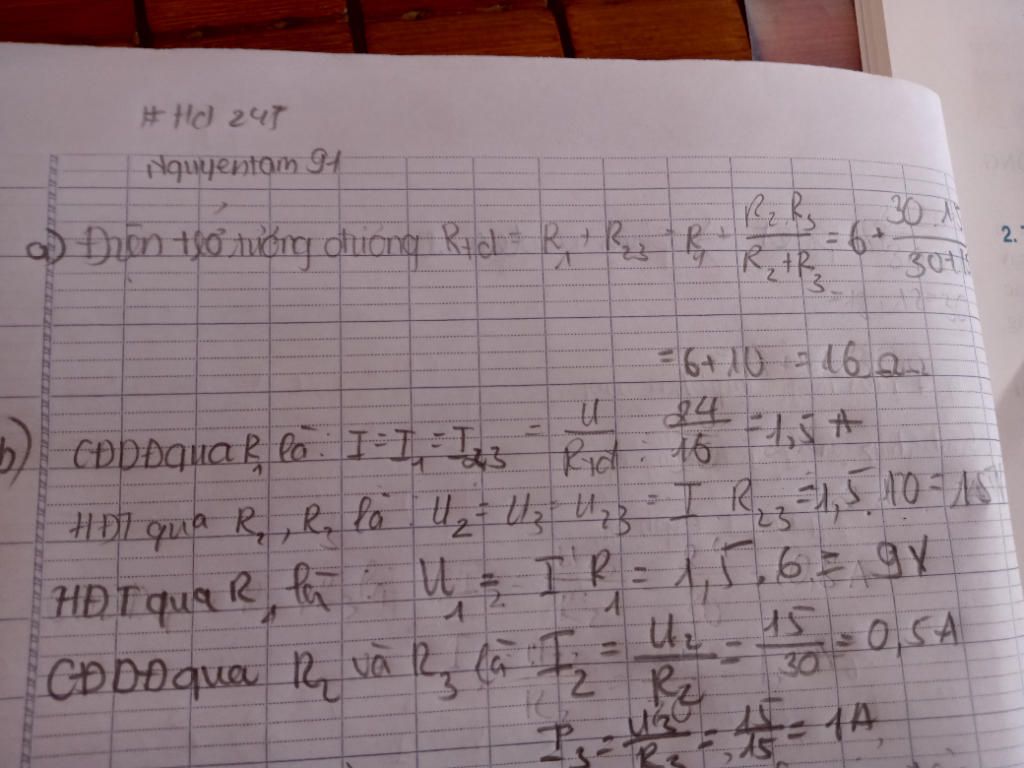 # Hd 247
Nguyentam 91
a) Điện trở tương đương Rtđ = R1 + R23 = R1 + R2.R3/R2+R3 = 6 + 30.15/30+15
= 6+10 = 16 Ω
b) CĐDĐ qua R1 là: I = I1 = I23 = U/Rtđ = 24/16 = 1,5 A
HĐT qua R2, R3 là U2 = U3 = U23 = I R23 = 1,5.10 = 15
HĐT qua R1 là: U1 = I R1 = 1,5.6 = 9V
CĐDĐ qua R2 và R3 là: I2 = U2/R2 = 15/30 = 0,5A
I3 = U3/R3 = 15/15 = 1A
2.